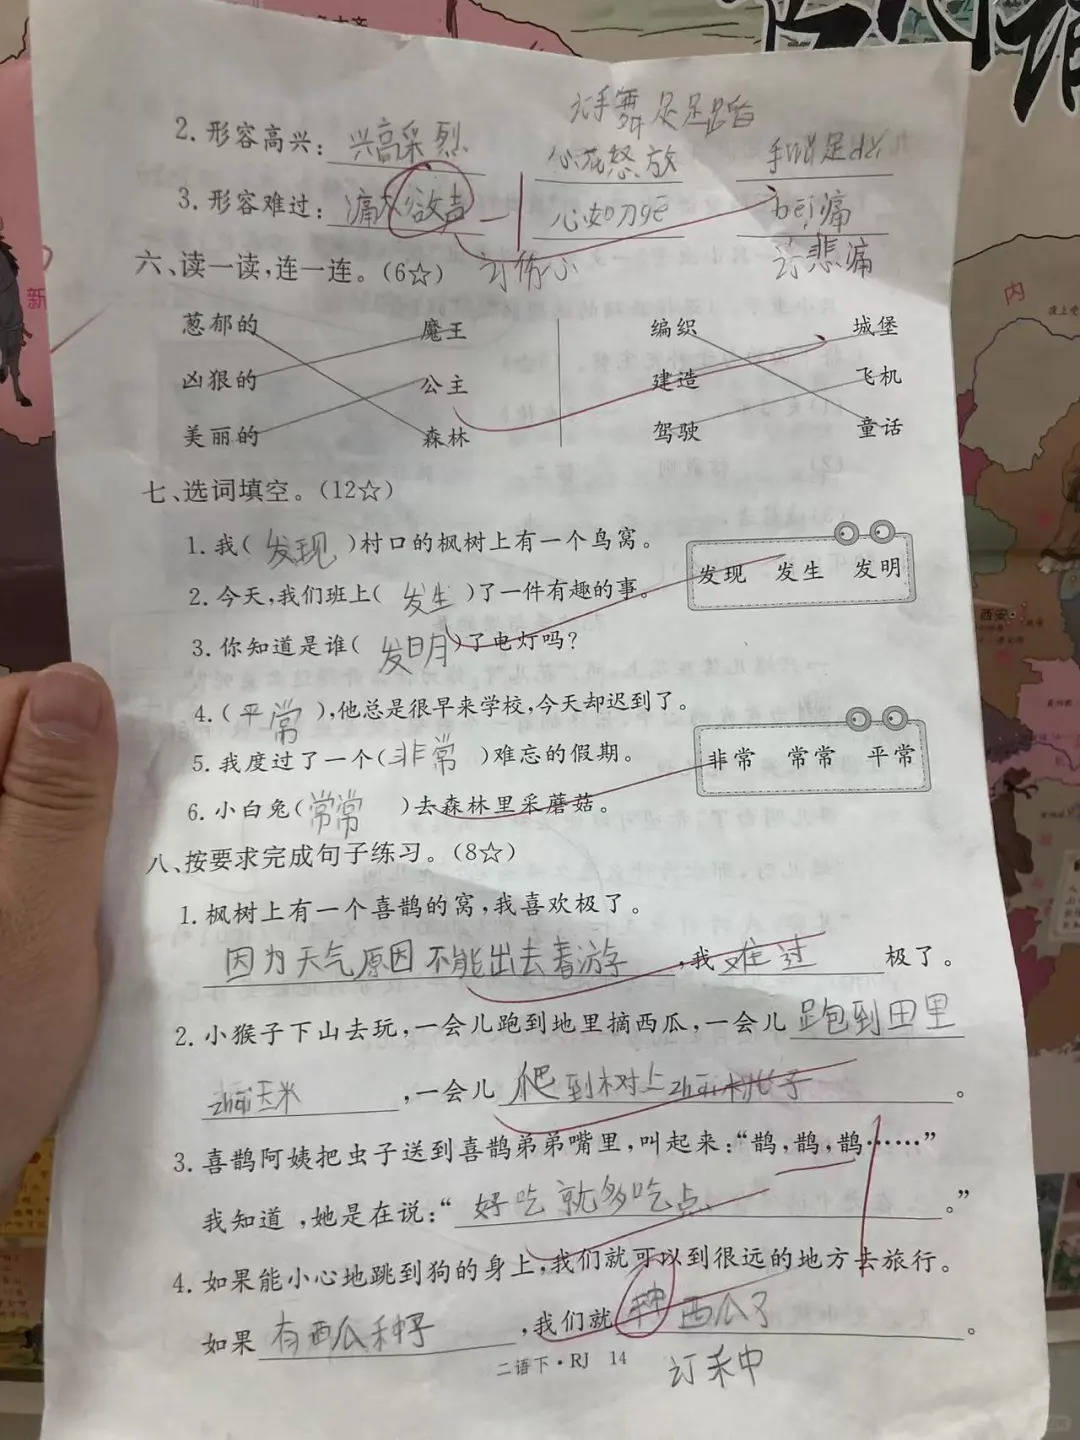 订手舞足足蹈
2.形容高兴：兴高采烈 心花怒放 手舞足
3.形容难过：痛 欲声 心如刀gē bēi痛
六、读一读，连一连。（6☆） 订伤心 订悲痛
葱郁的 魔王 编织 城堡
凶狠的 公主 建造 飞机
美丽的 森林 驾驶 童话
七、选词填空。（12☆）
1.我（发现）村口的枫树上有一个鸟窝。
发现 发生 发明
2.今天，我们班上（发生）了一件有趣的事。
3.你知道是谁（发明）了电灯吗？
4.（平常），他总是很早来学校，今天却迟到了。
5.我度过了一个（非常）难忘的假期。
非常 常常 平常
6.小白兔（常常）去森林里采蘑菇。
八、按要求完成句子练习。（8☆）
1.枫树上有一个喜鹊的窝，我喜欢极了。
因为天气原因不能出去春游字，我难过极了。
2.小猴子下山去玩，一会儿跑到地里摘西瓜，一会儿跑到田里
zhāi玉米，一会儿爬到树上zhāi桃子。
3.喜鹊阿姨把虫子送到喜鹊弟弟嘴里，叫起来：“鹊，鹊，鹊……”
我知道，她是在说：“好吃就多吃点。”
4.如果能小心地跳到狗的身上，我们就可以到很远的地方去旅行。
如果有西瓜种子，我们就种西瓜了。
二语下·RJ 14
订种
新
内
西安